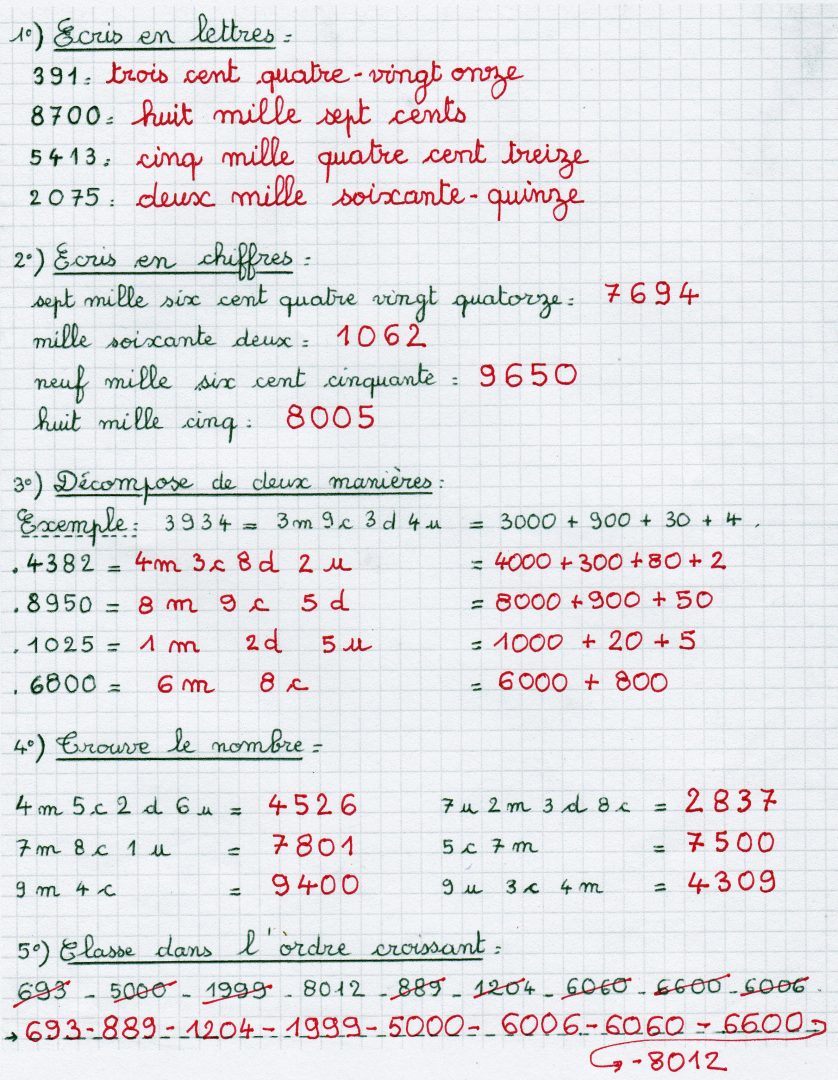 1°) Ecris en lettres :
391 : trois cent quatre-vingt onze
8700 : huit mille sept cents
5413 : cinq mille quatre cent treize
2075 : deux mille soixante-quinze
2°) Ecris en chiffres :
sept mille six cent quatre vingt quatorze : 7694
mille soixante deux : 1062
neuf mille six cent cinquante : 9650
huit mille cinq : 8005
3°) Décompose de deux manières :
Exemple : 3934 = 3m 9c 3d 4u = 3000 + 900 + 30 + 4.
. 4382 = 4m 3c 8d 2u = 4000 + 300 + 80 + 2
. 8950 = 8m 9c 5d = 8000 + 900 + 50
. 1025 = 1m 2d 5u = 1000 + 20 + 5
. 6800 = 6m 8c = 6000 + 800
4°) Trouve le nombre :
4m 5c 2d 6u = 4526 7u 2m 3d 8c = 2837
7m 8c 1u = 7801 5c 7m = 7500
9m 4c = 9400 9u 3c 4m = 4309
5°) Classe dans l'ordre croissant :
693 - 5000 - 1999 - 8012 - 889 - 1204 - 6060 - 6600 - 6006.
→ 693 - 889 - 1204 - 1999 - 5000 - 6006 - 6060 - 6600 -
→ - 8012